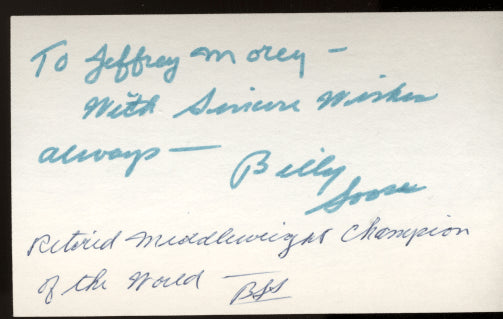 To Jeffrey Morey -
With Sincere Wishes
always -
Billy
Soose
Retired Middleweight Champion
of the World -
BSS